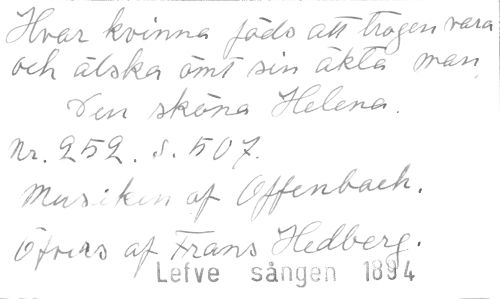 Hvar kvinna föds att trogen vara
och älska ömt sin äkta man.
Den sköna Helena.
Nr. 252. s. 507.
Musiken af Offenbach.
Öfvers af Frans Hedberg.
Lefve sången 1894